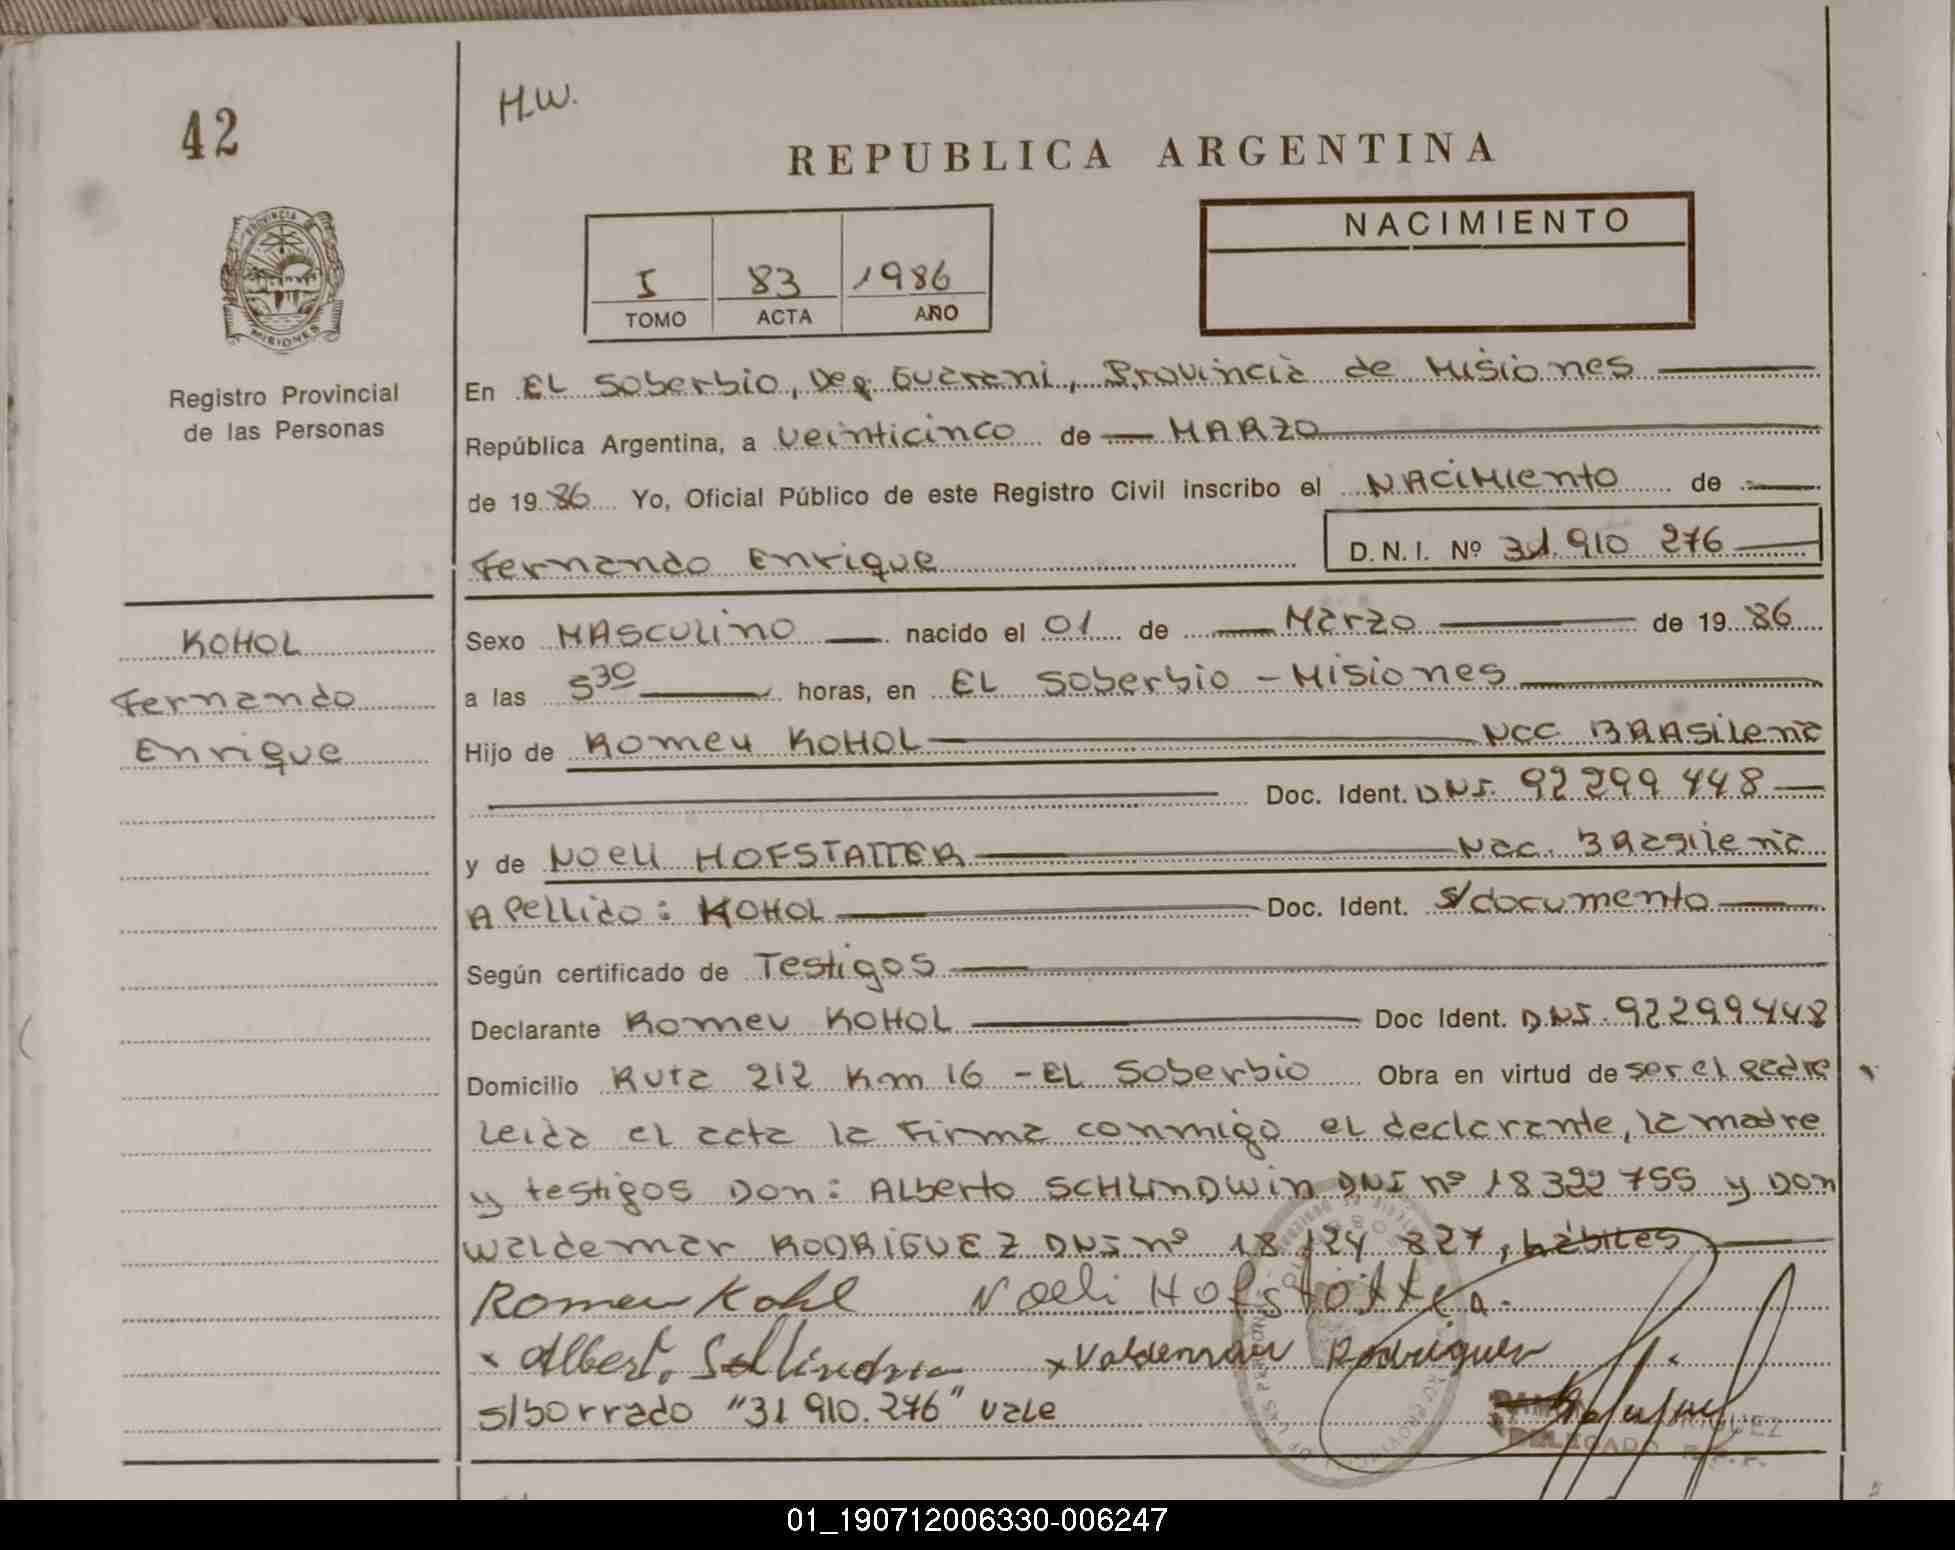 42
H.W.
REPUBLICA ARGENTINA
NACIMIENTO
I 83 1986
TOMO ACTA AÑO
PROVINCIA DE MISIONES
Registro Provincial
de las Personas
En EL Soberbio, Dep Guarani, Provincia de Misiones
República Argentina, a veinticinco de MARZO
de 1986 Yo, Oficial Público de este Registro Civil inscribo el NACIMIENTO de
Fernando Enrique D.N.I. Nº 31.910 276
KOHOL
Fernando
Enrique
Sexo MASCULINO nacido el 01 de Marzo de 1986
a las 5 30 horas, en EL Soberbio - Misiones
Hijo de Romeu KOHOL Nac BRASILENA
Doc. Ident. DNI. 92 299 448
y de NOELI HOFSTATTER Nac. BRasilena
Apellido: KOHOL Doc. Ident. s/documento
Según certificado de Testigos
Declarante Romeu KOHOL Doc Ident. DNI. 92299448
Domicilio Ruta 212 Km 16 - EL Soberbio Obra en virtud de ser el padre
Leida el acta la Firma conmigo el declarante, la madre
y testigos Don: Alberto SCHLINDWIN DNI nº 18 322 755 y DON
Waldemar RODRIGUEZ DNI nº 18 124 827, hábiles
Romeu Kohl Noeli Hofstätter.
x Albert. x Valdemar Rodrigues
s/borrado "31 910.276" vale
DELEGADO
01_190712006330-006247